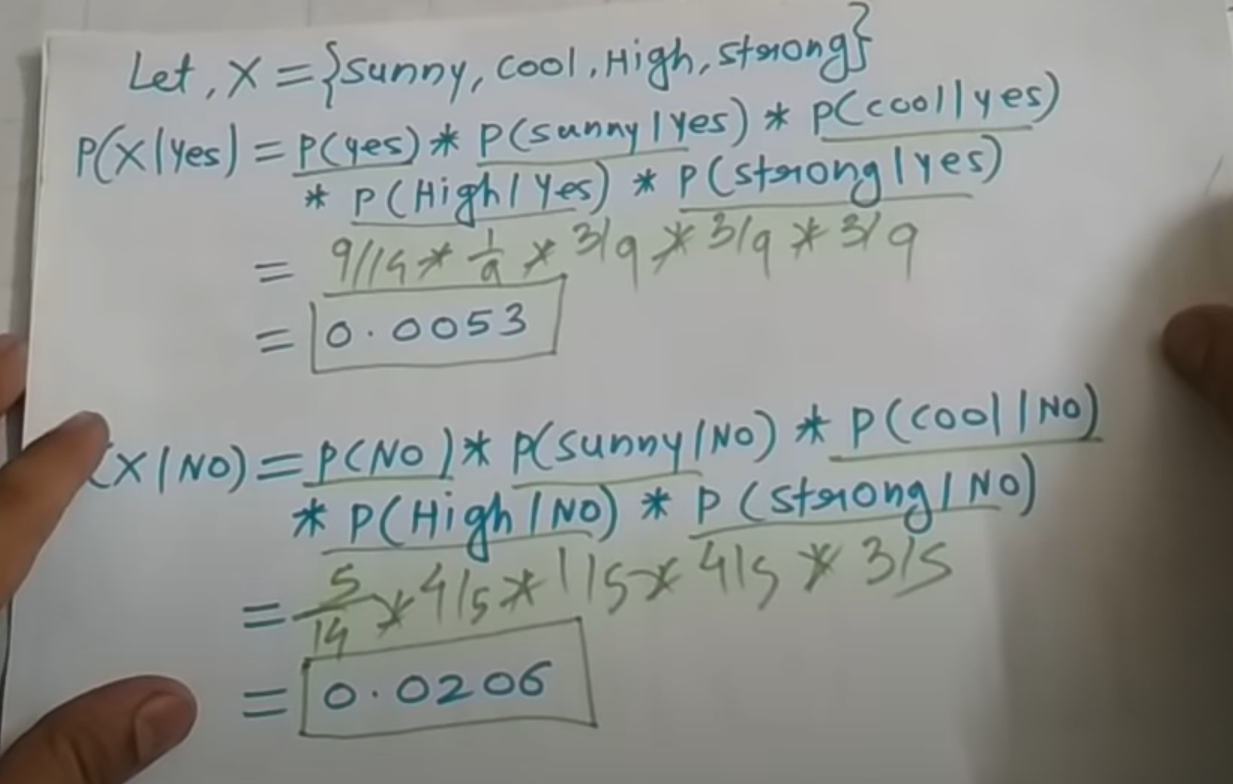 Let, X = {Sunny, Cool, High, Strong}
P(X|Yes) = P(yes) * P(sunny|Yes) * P(cool|yes)
* P(High|Yes) * P(strong|yes)
= 9/14 * 1/9 * 3/9 * 3/9 * 3/9
= 0.0053
(X|NO) = P(NO) * P(sunny/NO) * P(cool|NO)
* P(High/NO) * P(strong/NO)
= 5/14 * 4/5 * 1/5 * 4/5 * 3/5
= 0.0206